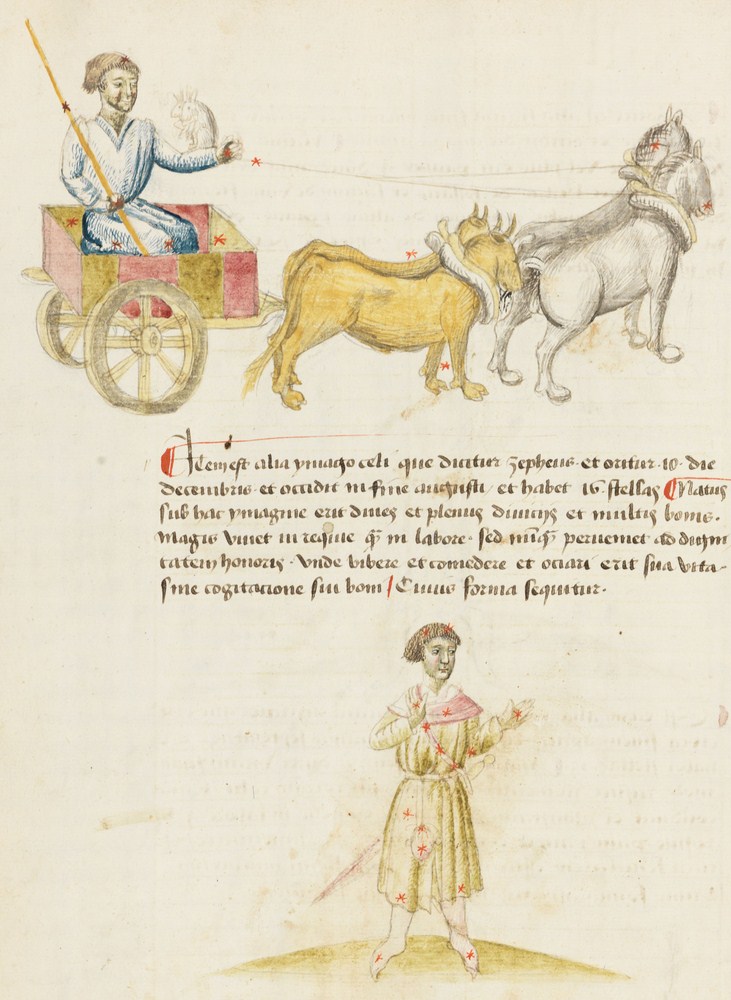 Item est alia ymago celi que dicitur zepheus · et oritur · 10 · die
decembris · et occidit in fine augusti · et habet 16 · stellas Natus
sub hac ymagine erit dives et plenus divicijs et multis bonis ·
magis vivet in requie q̄ m̄ in labore · sed nūq̄ perveniet ad digni
tatem honoris · vnde bibere et comedere et ociari erit sua vita ·
sine cogitacione sui boni / Cuius forma sequitur ·